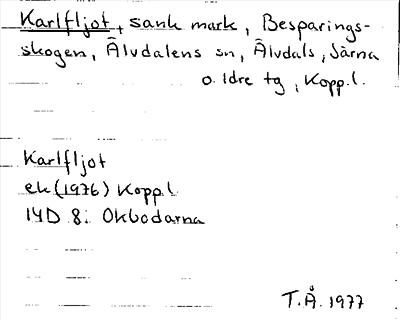 Karlfljot, sank mark, Besparings-
skogen, Älvdalens sn, Älvdals, Särna
o. Idre tg, Kopp.l.
Karlfljot
ek (1976) Kopp.l.
14D 8i Okbodarna
T.Å. 1977